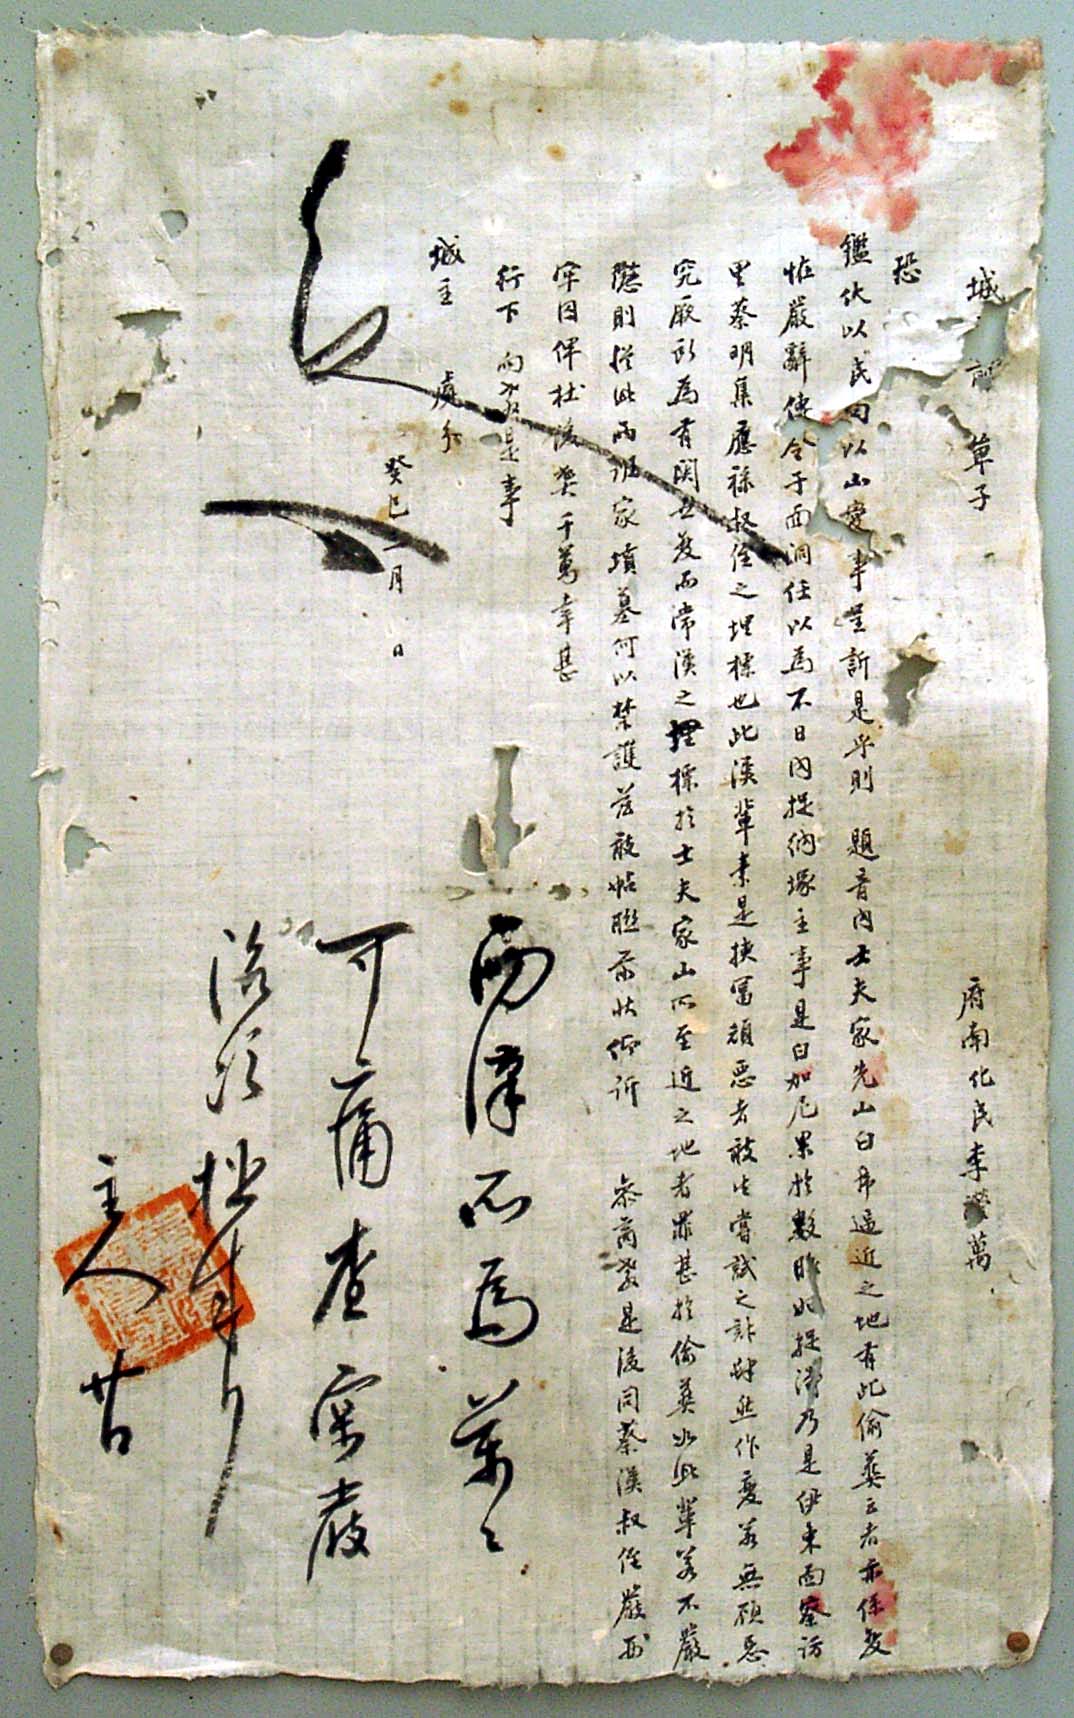 府南化民李 萬
城 單子
恐
鑑伏以民向以山變事呈訴是乎則 題音內士夫家先山白 逼近之地有此偷葬云者亦係
惟嚴辭傳令于面洞任以爲不日內捉納塚主事是白加尼果於數昨 捉 乃是伊東面察訪
里蔡明集應祿叔侄之埋標也此漢輩素是挾富頑惡者敢生嘗試之計肆然作變若無顧忌
究厥所爲有關世 而常漢之埋標於士夫家山 至近之地者罪甚於偷葬 此輩若不嚴
懲則從此兩班家墳墓何以禁護 敢帖聯前狀仰訴 參商敎是後同蔡漢叔侄嚴
牢囚俾杜後弊千萬幸甚
行下 向敎是事
城主 處分
癸巳 月 日
兩漢所爲萬〻
可痛查案嚴
 次捉來 向
主人 廿日